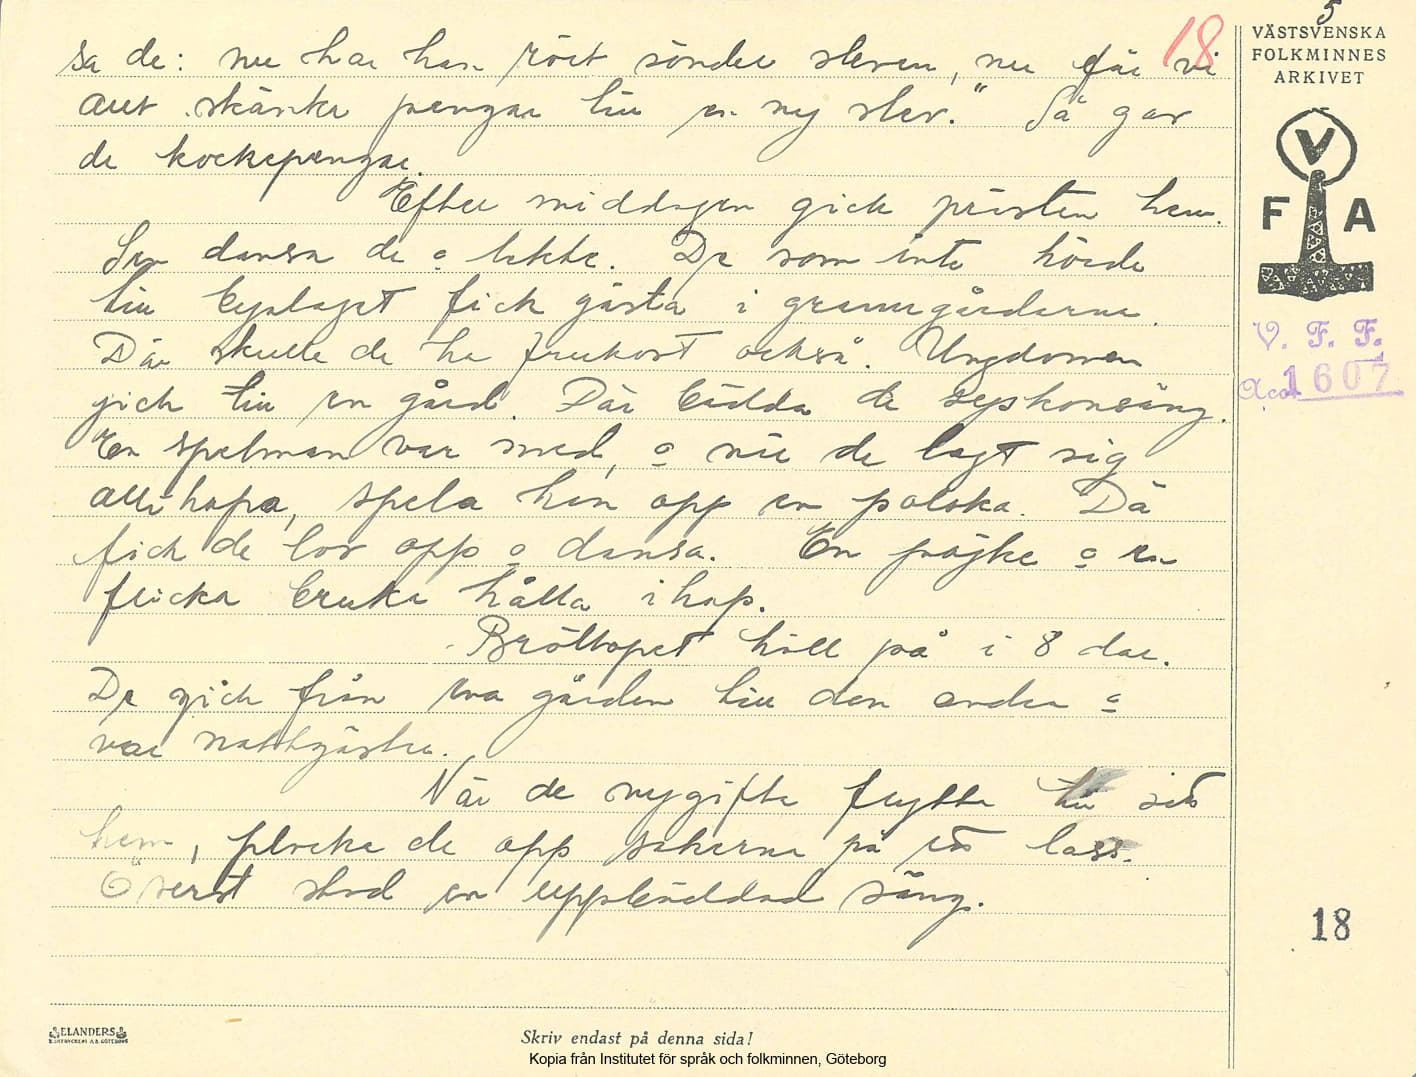 5
18
VÄSTSVENSKA
FOLKMINNES
ARKIVET
sa de: nu har han rört sönder sleven, nu får vi
allt skänka pengar till en ny slev." Så gav
de kockepengar.
Efter middagen gick prästen hem.
Sen dansa de o lekte. De som inte hörde
till bylaget fick gästa i granngårdarna.
Där skulle de ha frukost också. Ungdomen
gick till en gård. Där bädda de syskonsäng.
En spelman var med, o när de lagt sig
allihopa, spela han opp en polska. Då
fick de lov opp o dansa. En pojke o en
flicka bruka hålla ihop.
Bröllopet höll på i 8 dar.
De gick från ena gården till den andra o
var nattgäster.
När de nygifta flytta till sitt
hem, plocka de opp sakerna på ett lass.
Överst stod en uppbäddad säng.
V
F A
V. F. F.
Acc. 1607
18
ELANDERS
BOKTRYCKERI A.B. GÖTEBORG
Skriv endast på denna sida!
Kopia från Institutet för språk och folkminnen, Göteborg